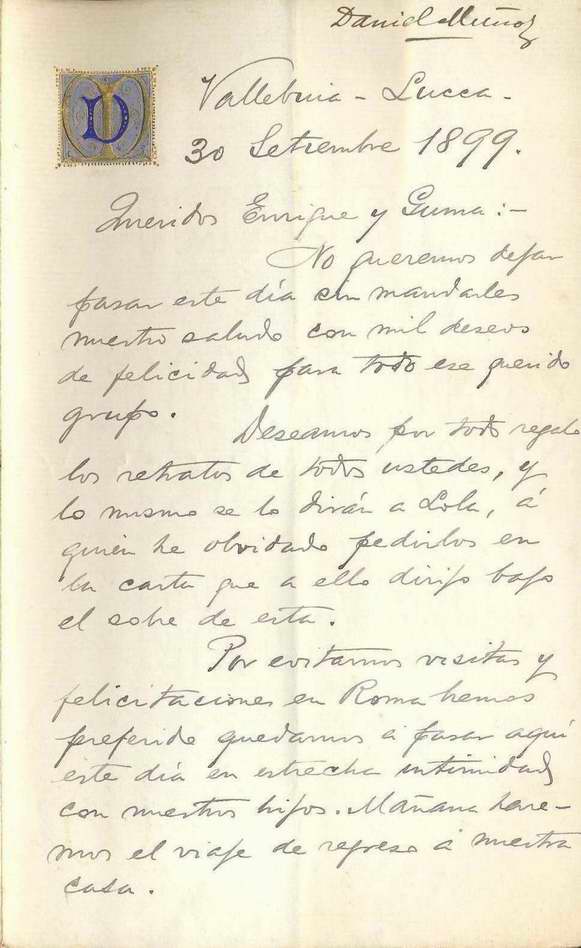 Daniel Muñoz
D
Vallebuia - Lucca -
30 Setiembre 1899.
Queridos Enrique y Guma:-
No queremos dejar
pasar este día sin mandarles
nuestro saludo con mil deseos
de felicidad para todo ese querido
grupo.
Deseamos por todo regalo
los retratos de todos ustedes, y
lo mismo se lo dirán a Lola, á
quién he olvidado pedirlos en
la carta que a ella dirijo bajo
el sobre de esta.
Por evitarnos visitas y
felicitaciones en Roma hemos
preferido quedarnos a pasar aquí
este día en estrecha intimidad
con nuestros hijos. Mañana hare-
mos el viaje de regreso á nuestra
casa.